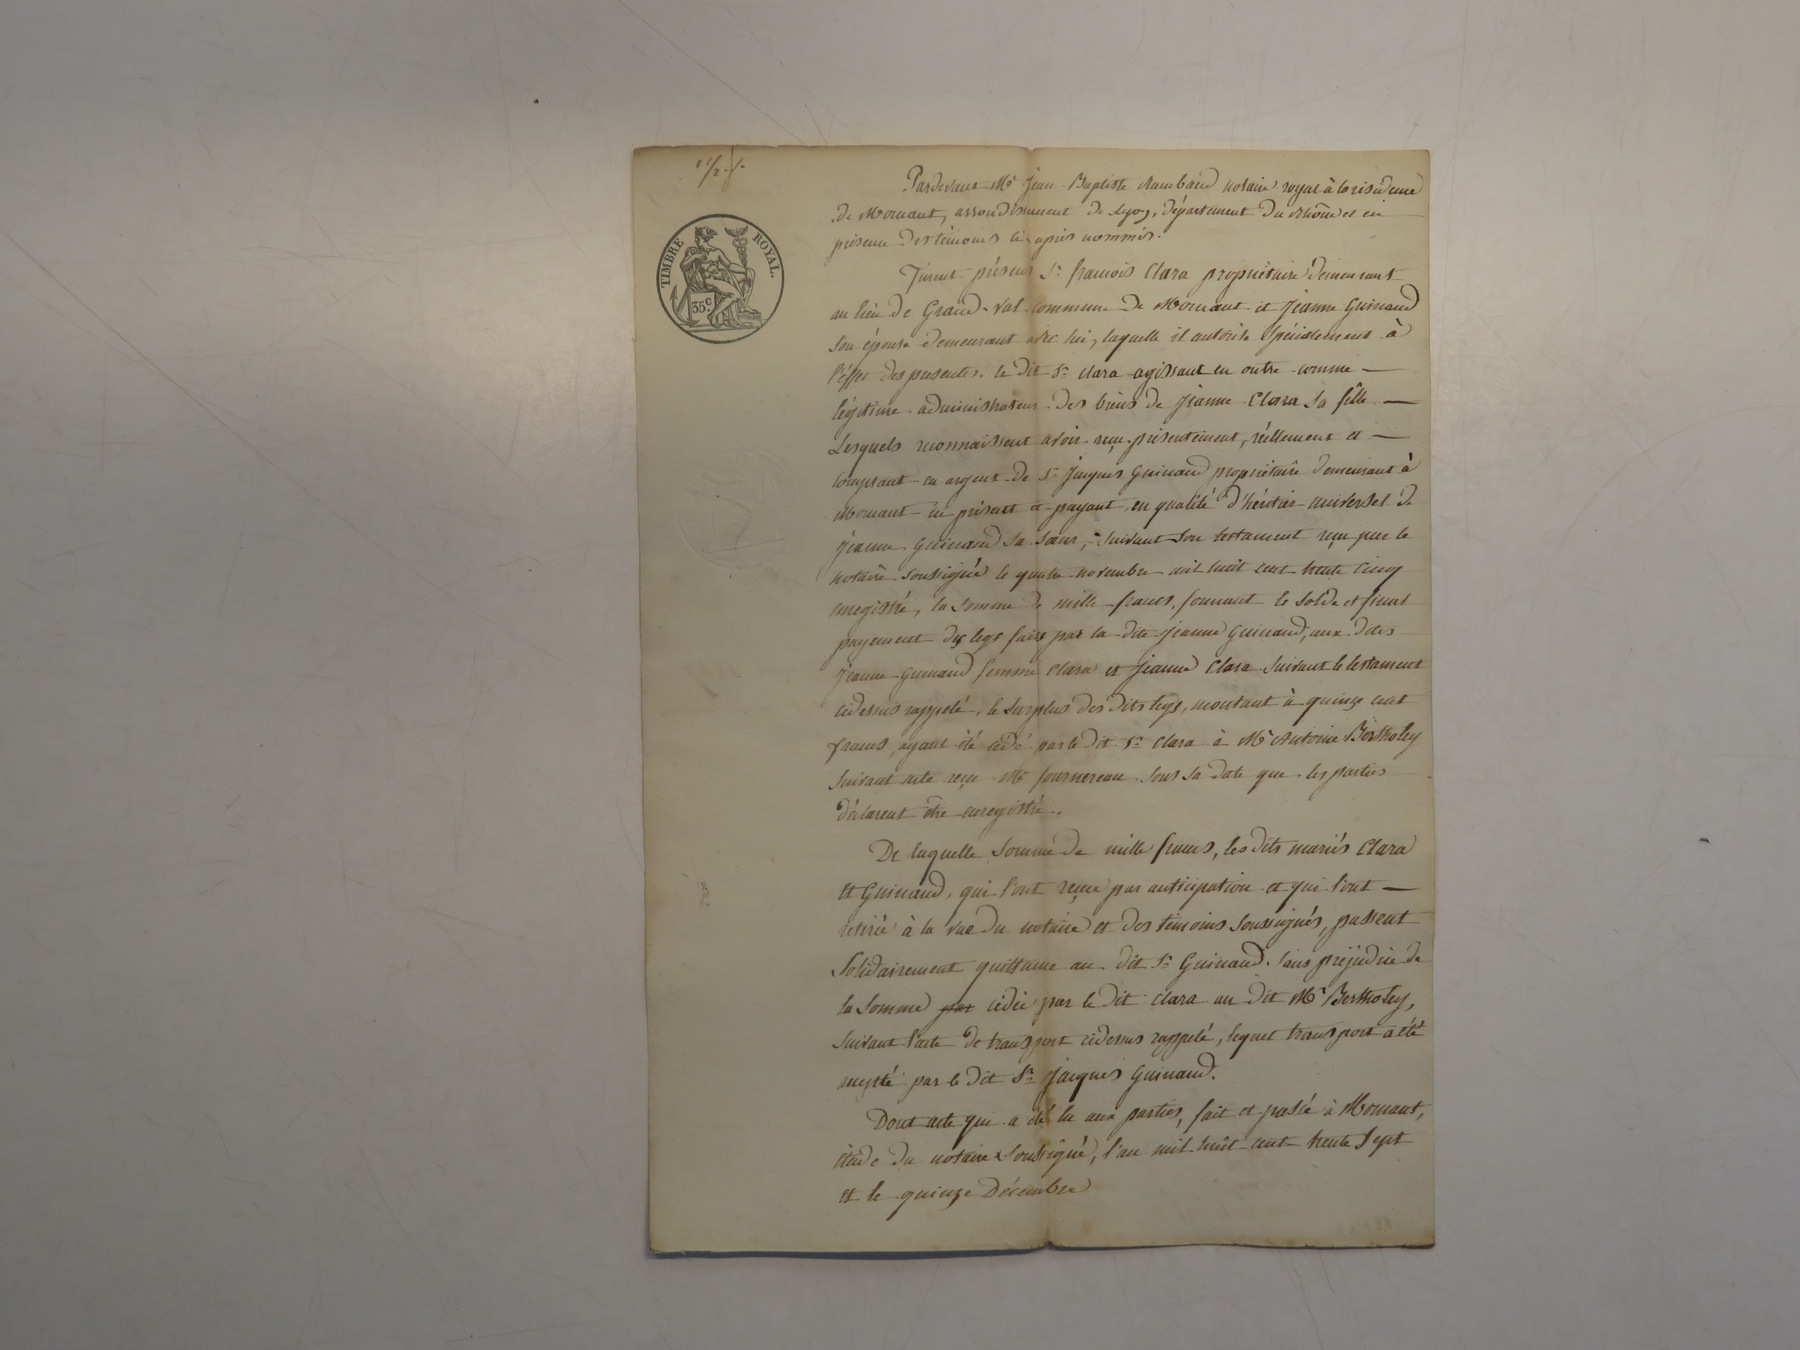 11/2.
TIMBRE ROYAL.
35 c.
Pardevant Me Jean Baptiste Rambaud notaire royal à la résidence
de Mornant, arrondissement de Lyon, département du Rhône et en
présence des témoins ci après nommés.
Furent présens Sr. françois Clara propriétaire demeurant
au lieu de Grand-val commune de Mornant et Jeanne Guinand
son épouse demeurant avec lui, laquelle il autorise spécialement à
l'effet des présentes. le dit Sr. Clara agissant en outre comme —
légitime administrateur des biens de Jeanne Clara sa fille —
Lesquels reconnaissent avoir reçu présentement, réellement et —
comptant en argent de Sr. Jacques Guinand propriétaire demeurant à
Mornant ici présent et payant en qualité d'héritier universel de
Jeanne Guinand sa sœur, suivant son testament reçu par le
notaire soussigné le quatre novembre mil huit cent trente cinq
enregistré, la somme de mille francs, formant le solde et final
payement des legs faits par la dite Jeanne Guinand, aux dites
Jeanne Guinand femme Clara et Jeanne Clara suivant le testament
cidessus rappelé, le surplus des dits legs, montant à quinze cent
francs, ayant été cédé par le dit Sr. Clara à Mr Antoine Bertholey
suivant acte reçu Me fournereau sous sa date que les parties
déclarent être enregistré.
De laquelle somme de mille francs, les dits mariés Clara
et Guinand, qui l'ont reçue par anticipation et qui l'ont —
retirée à la vue du notaire et des témoins soussignés, passent
solidairement quittance au dit Sr. Guinand. sans préjudice de
la somme par cédée par le dit Clara au dit Mr Bertholey,
suivant l'acte de transport cidessus rappelé, lequel transport a été
accepté par le dit Sr. Jacques Guinand.
Dont acte qui a été lu aux parties, fait et passé à Mornant,
étude du notaire soussigné, l'an mil huit cent trente sept
et le quinze Décembre